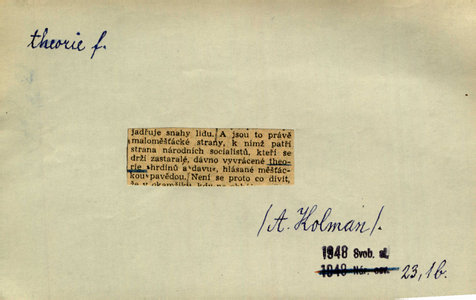 theorie f.
jadřuje snahy lidu. A jsou to právě
maloměšťácké strany, k nimž patří
strana národních socialistů, kteří se
drží zastaralé, dávno vyvrácené theo-
rie »hrdinů a davu«, hlásané měšťác-
kou »pavědou«. Není se proto co divit,
že v okamžiku, kdy
/A. Kolman/.
1948 Svob. sl.
1948 Nár. osv. 23, 1b.